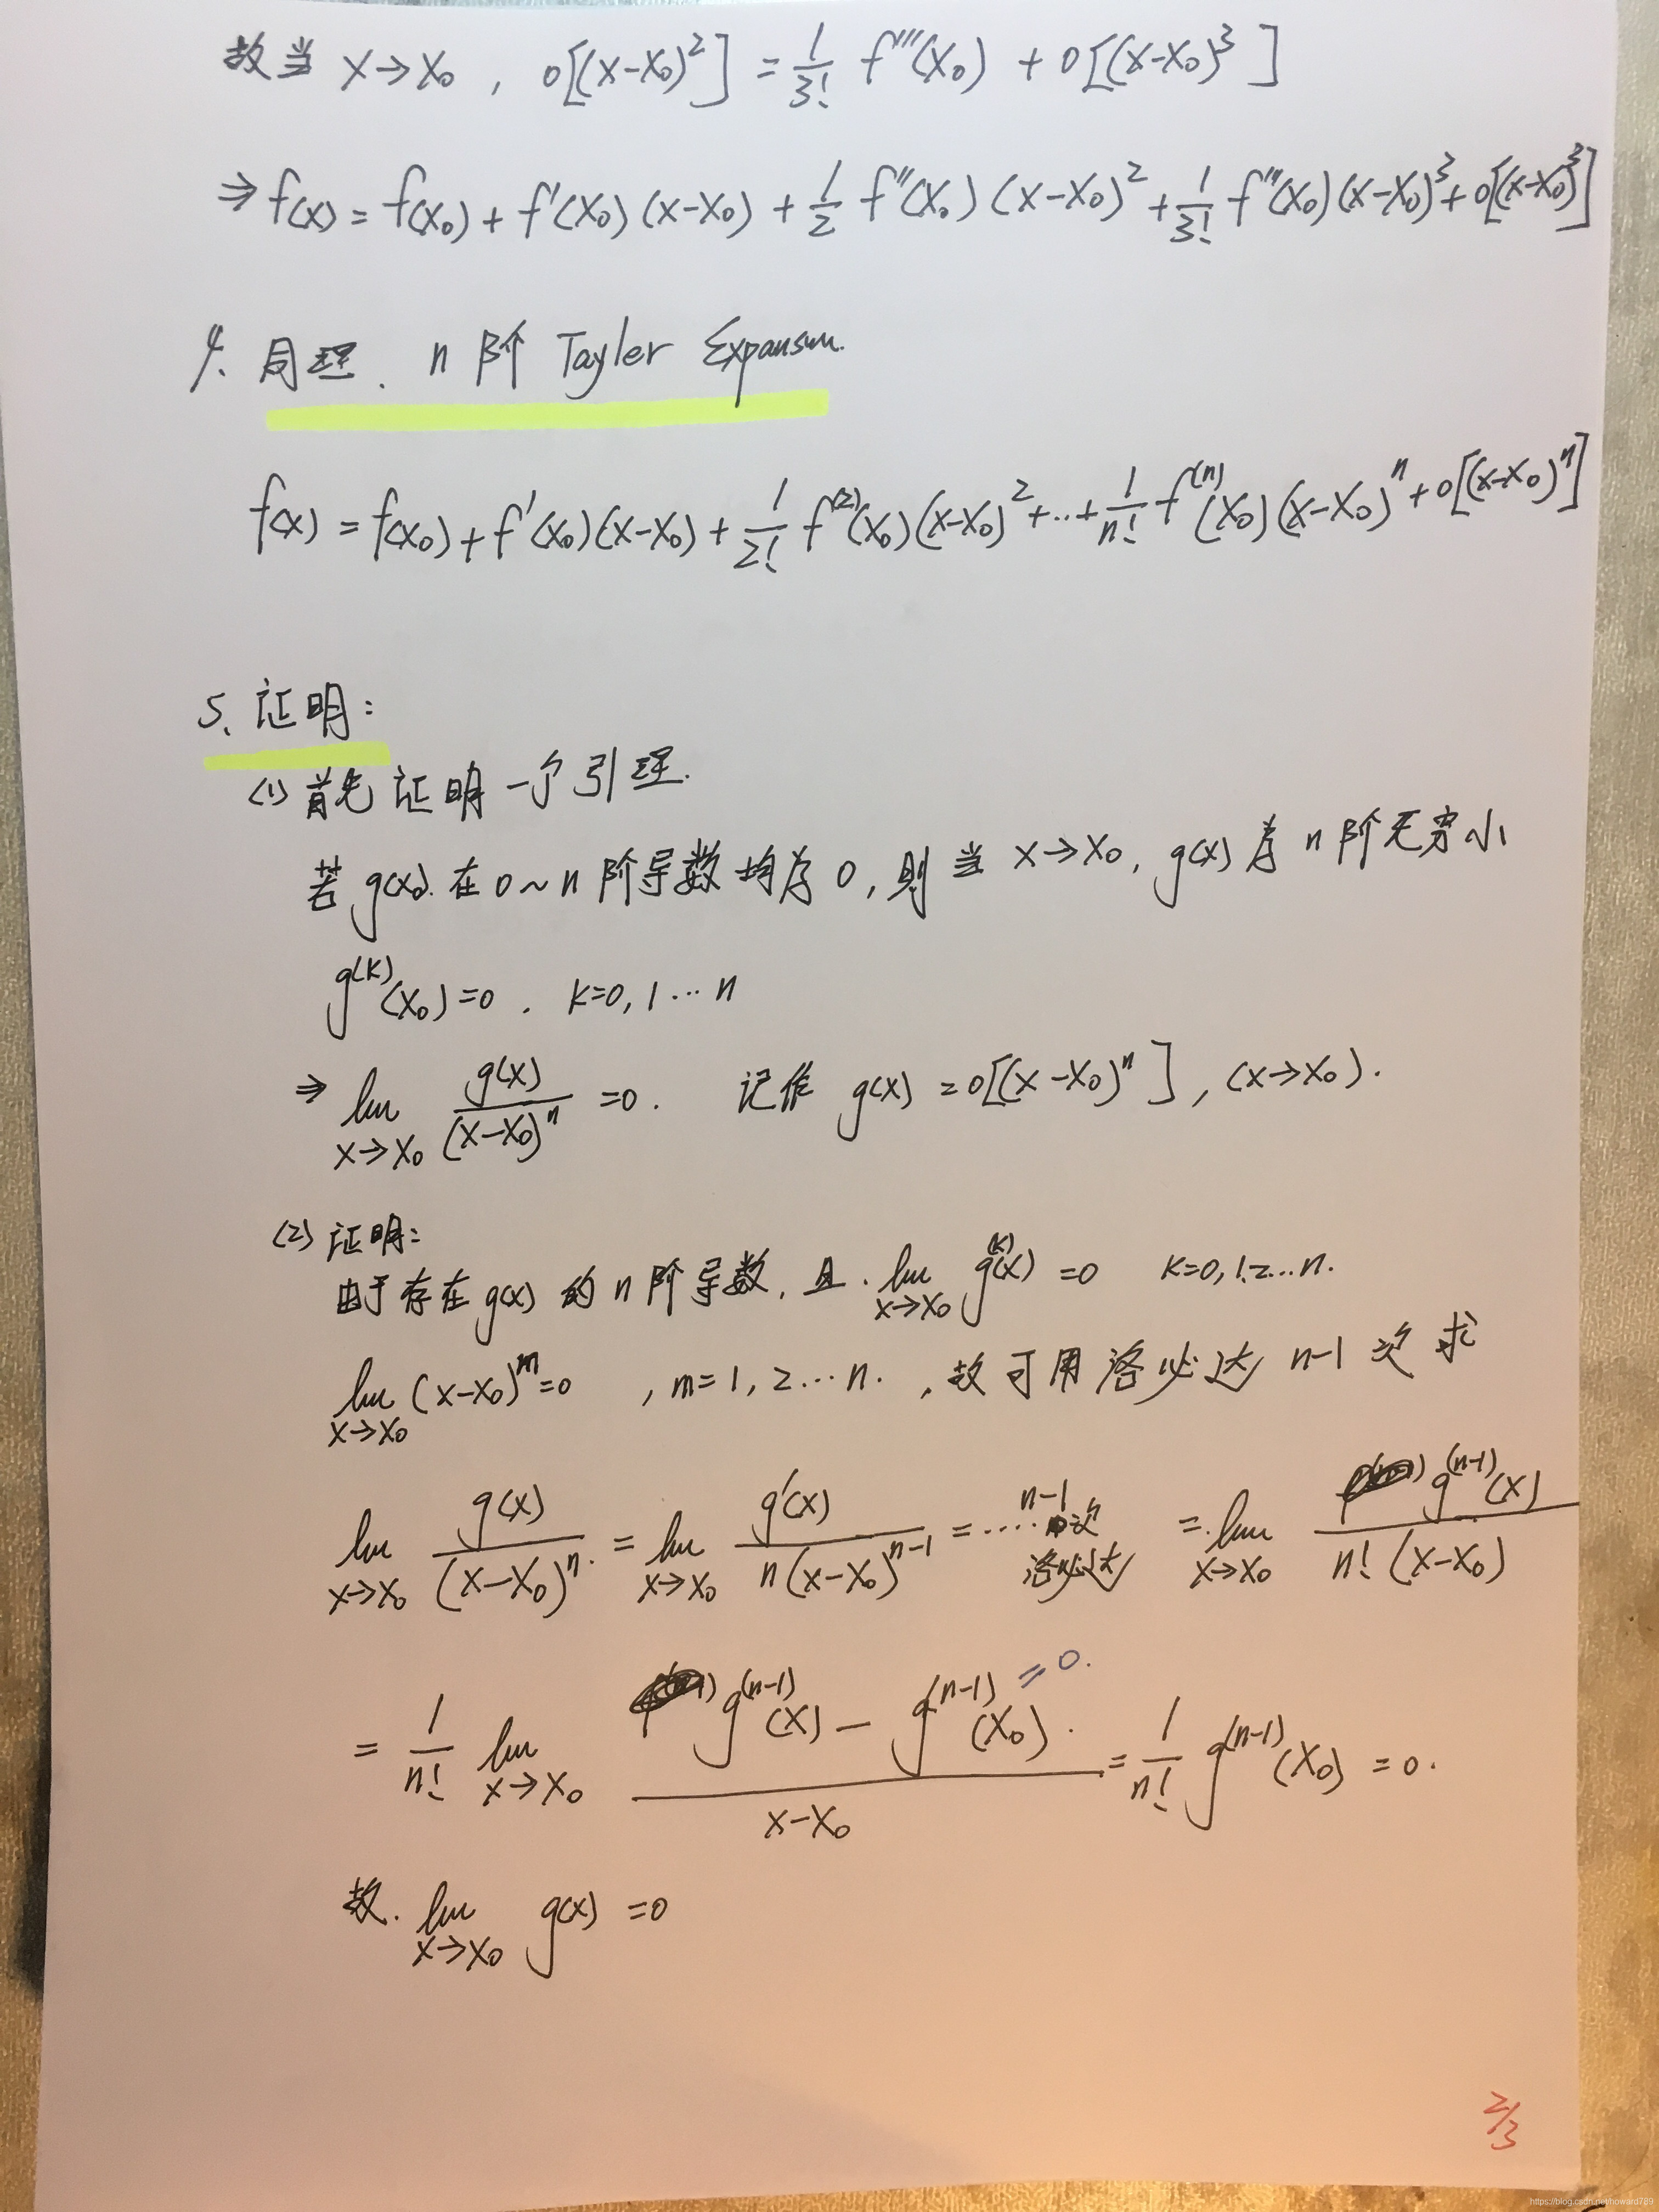 故当 x→x₀ , o[(x-x₀)²] = 1/3! f'''(x₀) + o[(x-x₀)³]
⇒ f(x) = f(x₀) + f'(x₀)(x-x₀) + 1/2 f''(x₀)(x-x₀)² + 1/3! f'''(x₀)(x-x₀)³ + o[(x-x₀)³]
4. 同理. n 阶 Tayler Expansion.
f(x) = f(x₀) + f'(x₀)(x-x₀) + 1/2! f⁽²⁾(x₀)(x-x₀)² + … + 1/n! f⁽ⁿ⁾(x₀)(x-x₀)ⁿ + o[(x-x₀)ⁿ]
5. 证明:
(1) 首先证明一个引理.
若 g(x) 在 0~n 阶导数均为 0, 则当 x→x₀, g(x) 为 n 阶无穷小
g⁽ᵏ⁾(x₀)=0 . k=0,1…n
⇒ lim x→x₀ g(x)/(x-x₀)ⁿ =0. 记作 g(x) = o[(x-x₀)ⁿ], (x→x₀).
(2) 证明:
由于存在 g(x) 的 n 阶导数, 且. lim x→x₀ g⁽ᵏ⁾(x) =0 k=0,1,2…n.
lim x→x₀ (x-x₀)ᵐ=0 , m=1,2…n. , 故可用洛必达 n-1 次求
lim x→x₀ g(x)/(x-x₀)ⁿ = lim x→x₀ g'(x)/n(x-x₀)ⁿ⁻¹ = …… n-1 次 洛必达 = lim x→x₀ g⁽ⁿ⁻¹⁾(x)/n!(x-x₀)
= 1/n! lim x→x₀ (g⁽ⁿ⁻¹⁾(x) - g⁽ⁿ⁻¹⁾(x₀) = 0.)/(x-x₀) = 1/n! g⁽ⁿ⁻¹⁾(x₀) = 0.
故. lim x→x₀ g(x) =0
2/3
https://blog.csdn.net/howard789